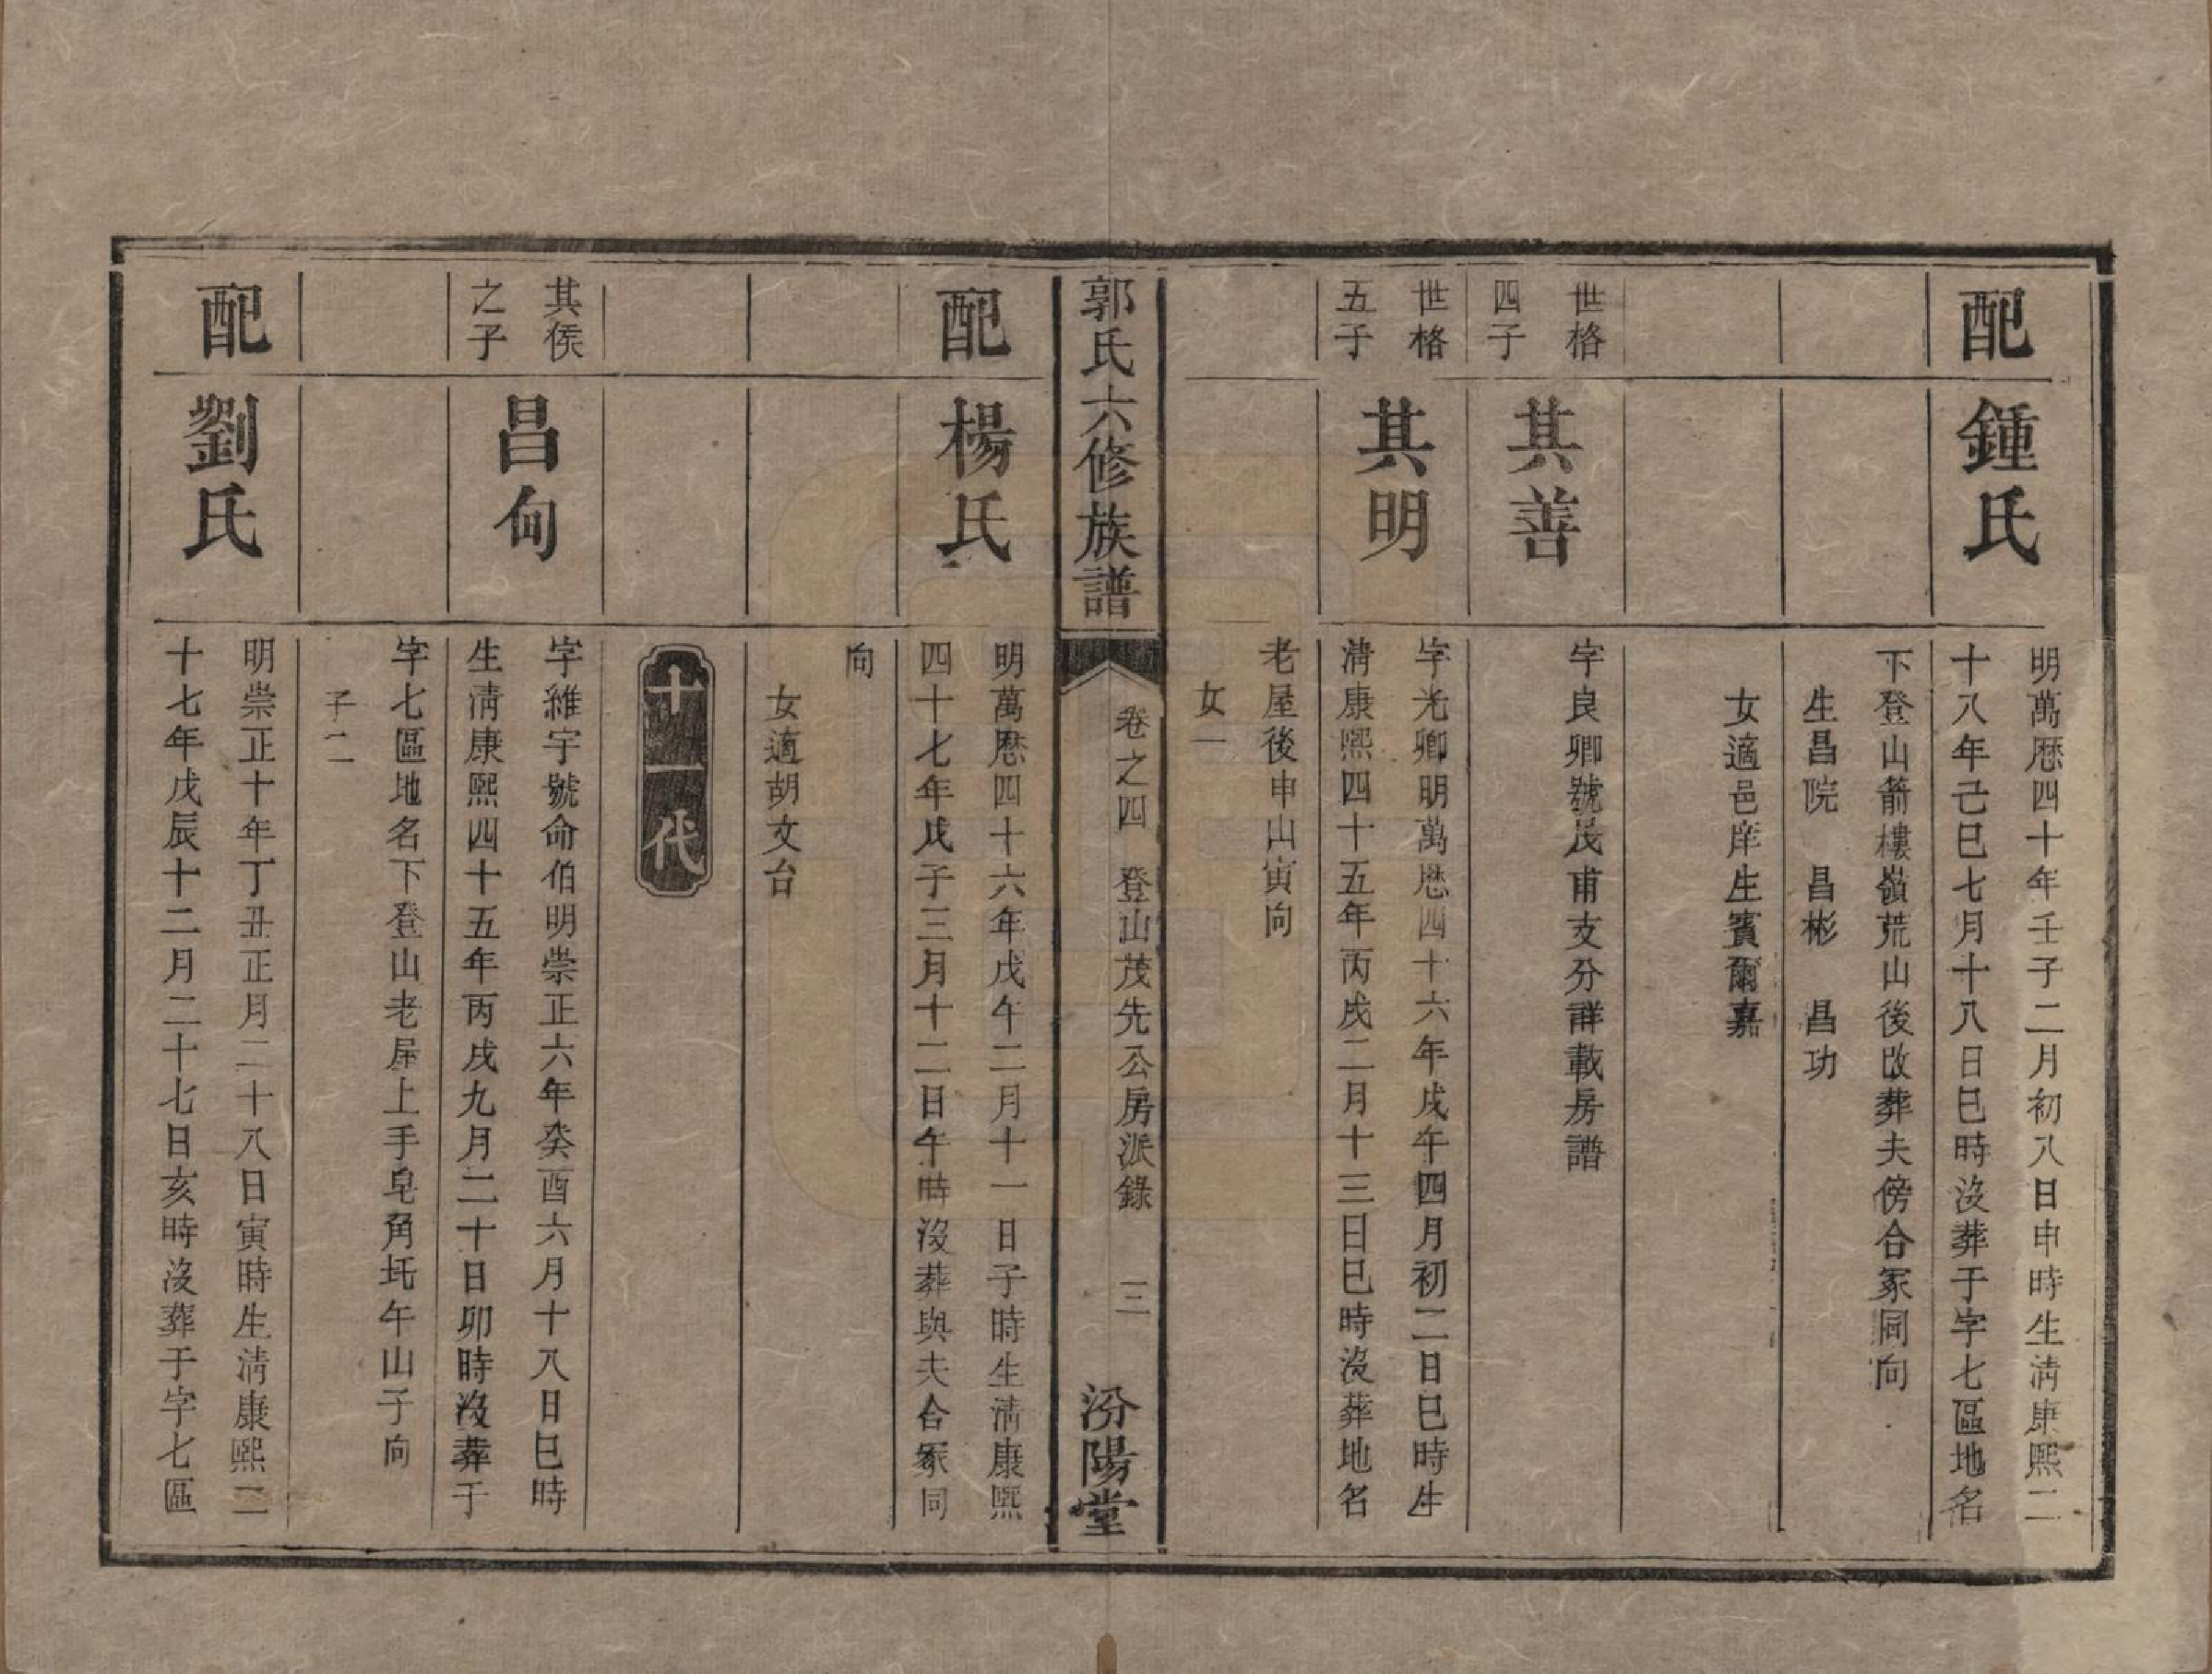 配
鍾氏
明萬厯四十年壬子二月初八日申時生淸康熙二
十八年己巳七月十八日巳時沒葬于字七區地名
下登山箭樓嶺荒山後改葬夫傍合冢同向
生昌院　昌彬　昌功
女適邑庠生賓爾嘉
世格
四子
其善
字良卿號茂甫支分詳載房譜
世格
五子
其明
字光卿明萬厯四十六年戊午四月初二日巳時生
淸康熙四十五年丙戌二月十三日巳時沒葬地名
老屋後申山寅向
女一
郭氏六修族譜
卷之四　登山茂先公房派錄　三
汾陽堂
配
楊氏
明萬厯四十六年戊午二月十一日子時生淸康熙
四十七年戊子三月十二日午時沒葬與夫合冢同
向
女適胡文台
十一代
其侯
之子
昌甸
字維宇號命伯明崇正六年癸酉六月十八日巳時
生淸康熙四十五年丙戌九月二十日卯時沒葬于
字七區地名下登山老屋上手皂角圫午山子向
子二
配
劉氏
明崇正十年丁丑正月二十八日寅時生淸康熙二
十七年戊辰十二月二十七日亥時沒葬于字七區